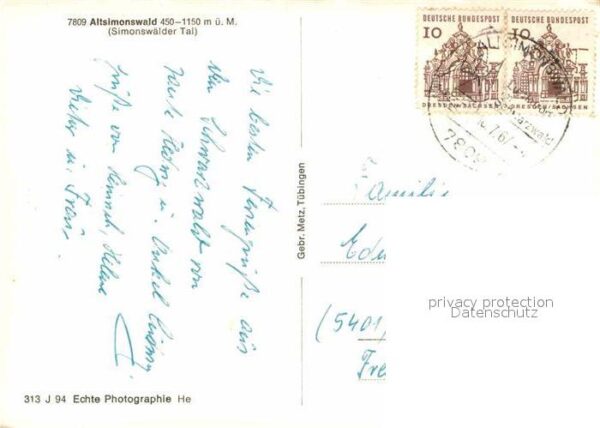 7809 Altsimonswald 450–1150 m ü. M.
(Simonswälder Tal)
DEUTSCHE BUNDESPOST
10
DRESDEN-SACHSEN
DEUTSCHE BUNDESPOST
10
DRESDEN-SACHSEN
ALTSIMONSWALD
Die besten Feriengrüße aus
dem Schwarzwald von
Tante Hedwig u. Onkel
Grüße von Heinrich, Helene
Dieter u. Frau.
Gebr. Metz, Tübingen
Familie
(5401)
privacy protection
Datenschutz
313 J 94 Echte Photographie He